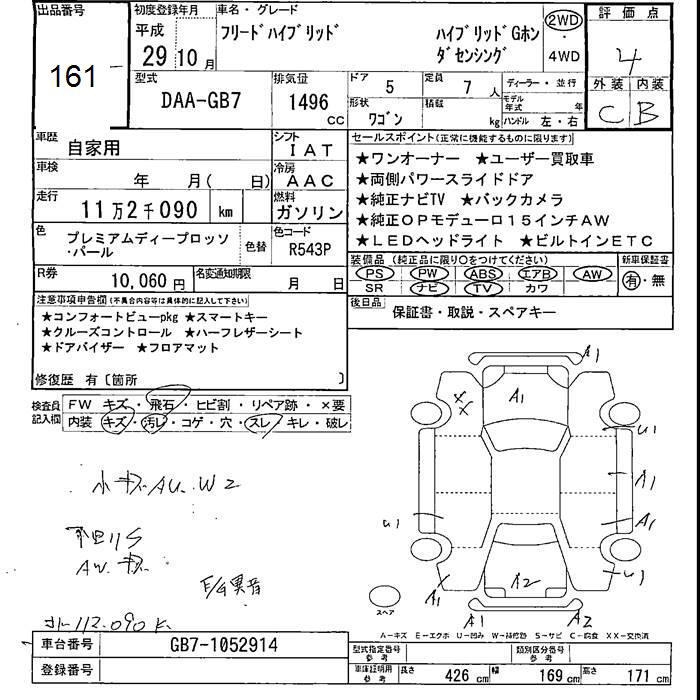 出品番号
161
初度登録年月
平成
29 10 月
車名・グレード
フリードハイブリッド
ハイブリッドGホン
ダセンシング
2WD
・
4WD
評価点
4
外装 内装
C B
型式
DAA-GB7
排気量
1496
cc
ドア 5
定員 7 人
形状 ワゴン
積載 kg
ディーラー・並行
モデル年式 年
ハンドル 左・右
車歴 自家用
シフト IAT
車検 年 月( 日)
冷房 AAC
走行 11万2千090 km
燃料 ガソリン
色 プレミアムディープロッソ
・パール
色替
色コード R543P
R券 10,060円
名変通知期限 月 日
セールスポイント(正常に機能するものに限ります)
★ワンオーナー ★ユーザー買取車
★両側パワースライドドア
★純正ナビTV ★バックカメラ
★純正OPモデューロ15インチAW
★LEDヘッドライト ★ビルトインETC
装備品(純正品に限り○をつけてください)
PS PW ABS エアB AW
SR ナビ TV カワ
新車保証書
有・無
後日品 保証書・取説・スペアキー
注意事項申告欄(不具合内容等は具体的に記入して下さい)
★コンフォートビューpkg ★スマートキー
★クルーズコントロール ★ハーフレザーシート
★ドアバイザー ★フロアマット
修復歴 有〔箇所 〕
検査員
記入欄
FW キズ・飛石・ヒビ割・リペア跡・×要
内装 キズ・汚レ・コゲ・穴・スレ・キレ・破レ
小キズAU.W2
下回りS
AWキズ
E/G異音
メーター112.090K
A1
A1
XX
U1
A1
U1
A1
U1
A1
A2
A1
A2
スペア
A−キズ E−エクボ U−凹み W−補修跡 S−サビ C−腐食 XX−交換済
車台番号 GB7-1052914
登録番号
型式指定番号
参考
類別区分番号
参考
車庫証明用
参考
長さ 426 cm 幅 169 cm 高さ 171 cm